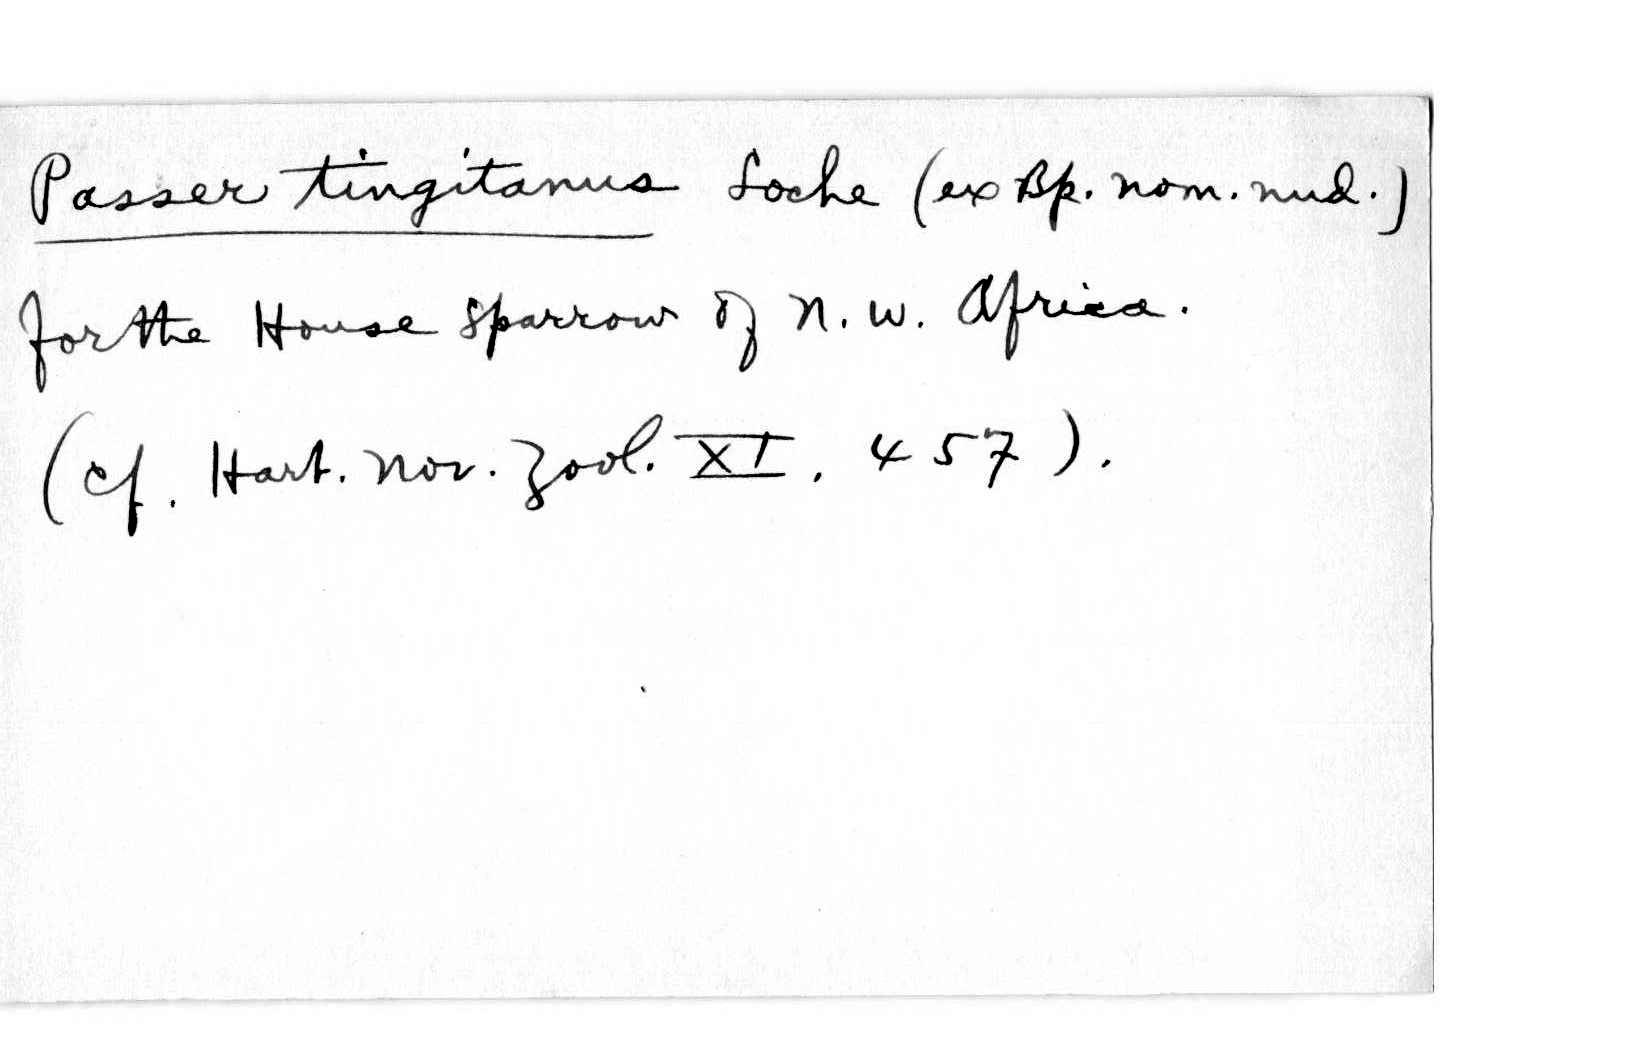 Passer tingitanus Loche (ex Bp. nom. nud.)
for the House Sparrow of N. W. Africa.
(cf. Hart. Nov. Zool. XI, 457).